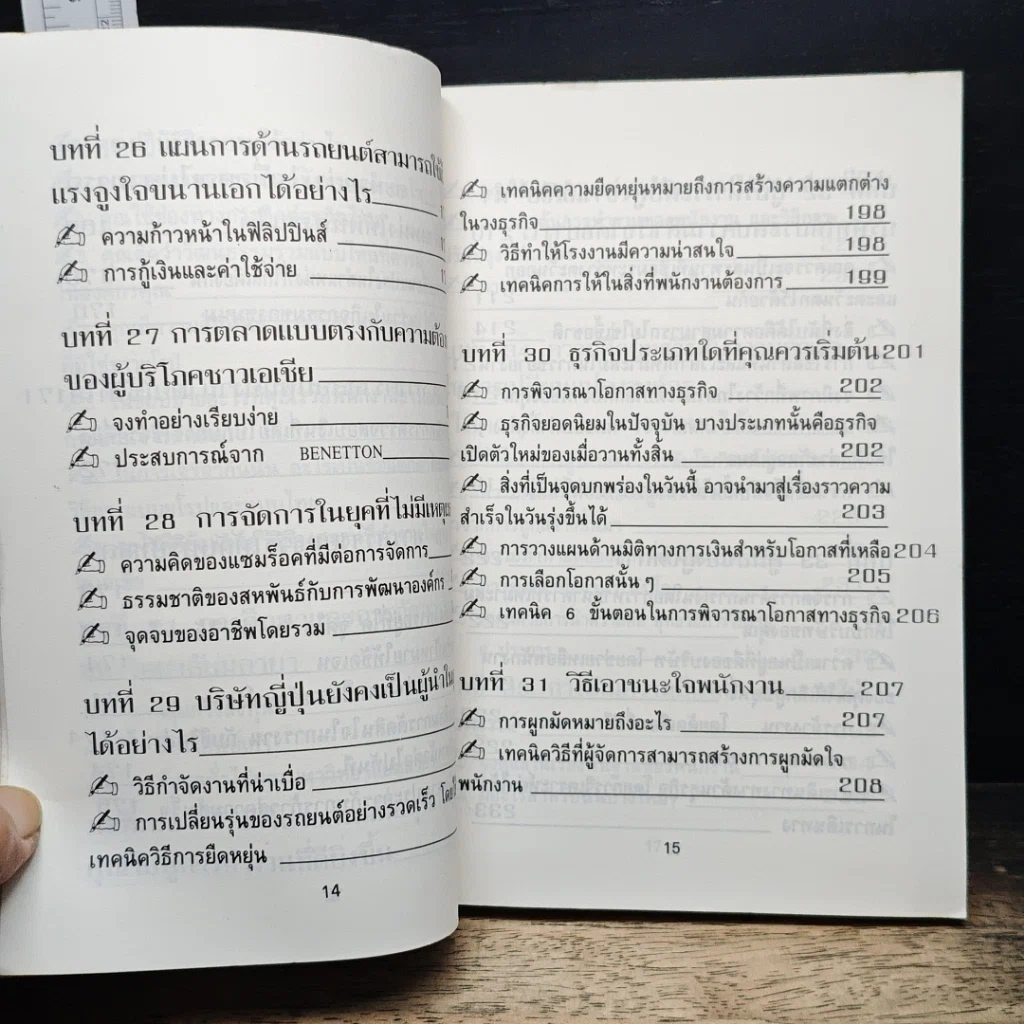 บทที่ 26 แผนการด้านรถยนต์สามารถ
แรงจูงใจขนานเอกได้อย่างไร
ความก้าวหน้าในฟิลิปปินส์
การกู้เงินและค่าใช้จ่าย
บทที่ 27 การตลาดแบบตรงกับความ
ของผู้บริโภคชาวเอเชีย
จงทำอย่างเรียบง่าย
ประสบการณ์จาก BENETTON
บทที่ 28 การจัดการในยุคที่ไม่มี
ความคิดของแซมร็อคที่มีต่อการจัดการ
ธรรมชาติของสหพันธ์กับการพัฒนาองค์กร
จุดจบของอาชีพโดยรวม
บทที่ 29 บริษัทญี่ปุ่นยังคงเป็นผู้นำ
ได้อย่างไร
วิธีกำจัดงานที่น่าเบื่อ
การเปลี่ยนรุ่นของรถยนต์อย่างรวดเร็ว
เทคนิควิธีการยืดหยุ่น
14
เทคนิคความยืดหยุ่นหมายถึงการสร้างความแตกต่าง
ในวงธุรกิจ 198
วิธีทำให้โรงงานมีความน่าสนใจ 198
เทคนิคการให้ในสิ่งที่พนักงานต้องการ 199
บทที่ 30 ธุรกิจประเภทใดที่คุณควรเริ่มต้น 201
การพิจารณาโอกาสทางธุรกิจ 202
ธุรกิจยอดนิยมในปัจจุบัน บางประเภทนั้นคือธุรกิจ
เปิดตัวใหม่ของเมื่อวานทั้งสิ้น 202
สิ่งที่เป็นจุดบกพร่องในวันนี้ อาจนำมาสู่เรื่องราวความ
สำเร็จในวันรุ่งขึ้นได้ 203
การวางแผนด้านมิติทางการเงินสำหรับโอกาสที่เหลือ 204
การเลือกโอกาสนั้น ๆ 205
เทคนิค 6 ขั้นตอนในการพิจารณาโอกาสทางธุรกิจ 206
บทที่ 31 วิธีเอาชนะใจพนักงาน 207
การผูกมัดหมายถึงอะไร 207
เทคนิควิธีที่ผู้จัดการสามารถสร้างการผูกมัดใจ
พนักงาน 208
15